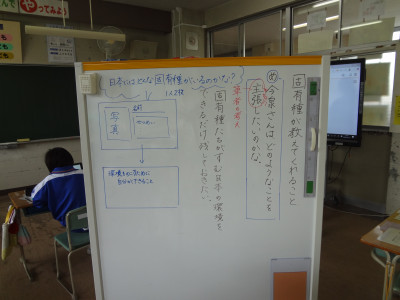 やってみよう
固有種が教えてくれること
め 今泉さんはどのようなことを
主張したいのかな。
筆者の考え
固有種たちがすむ日本の環境を
できるだけ残しておきたい。
日本にはどんな固有種がいるのかな？
1人2枚
名前
写真
環境を守るために
自分ができること